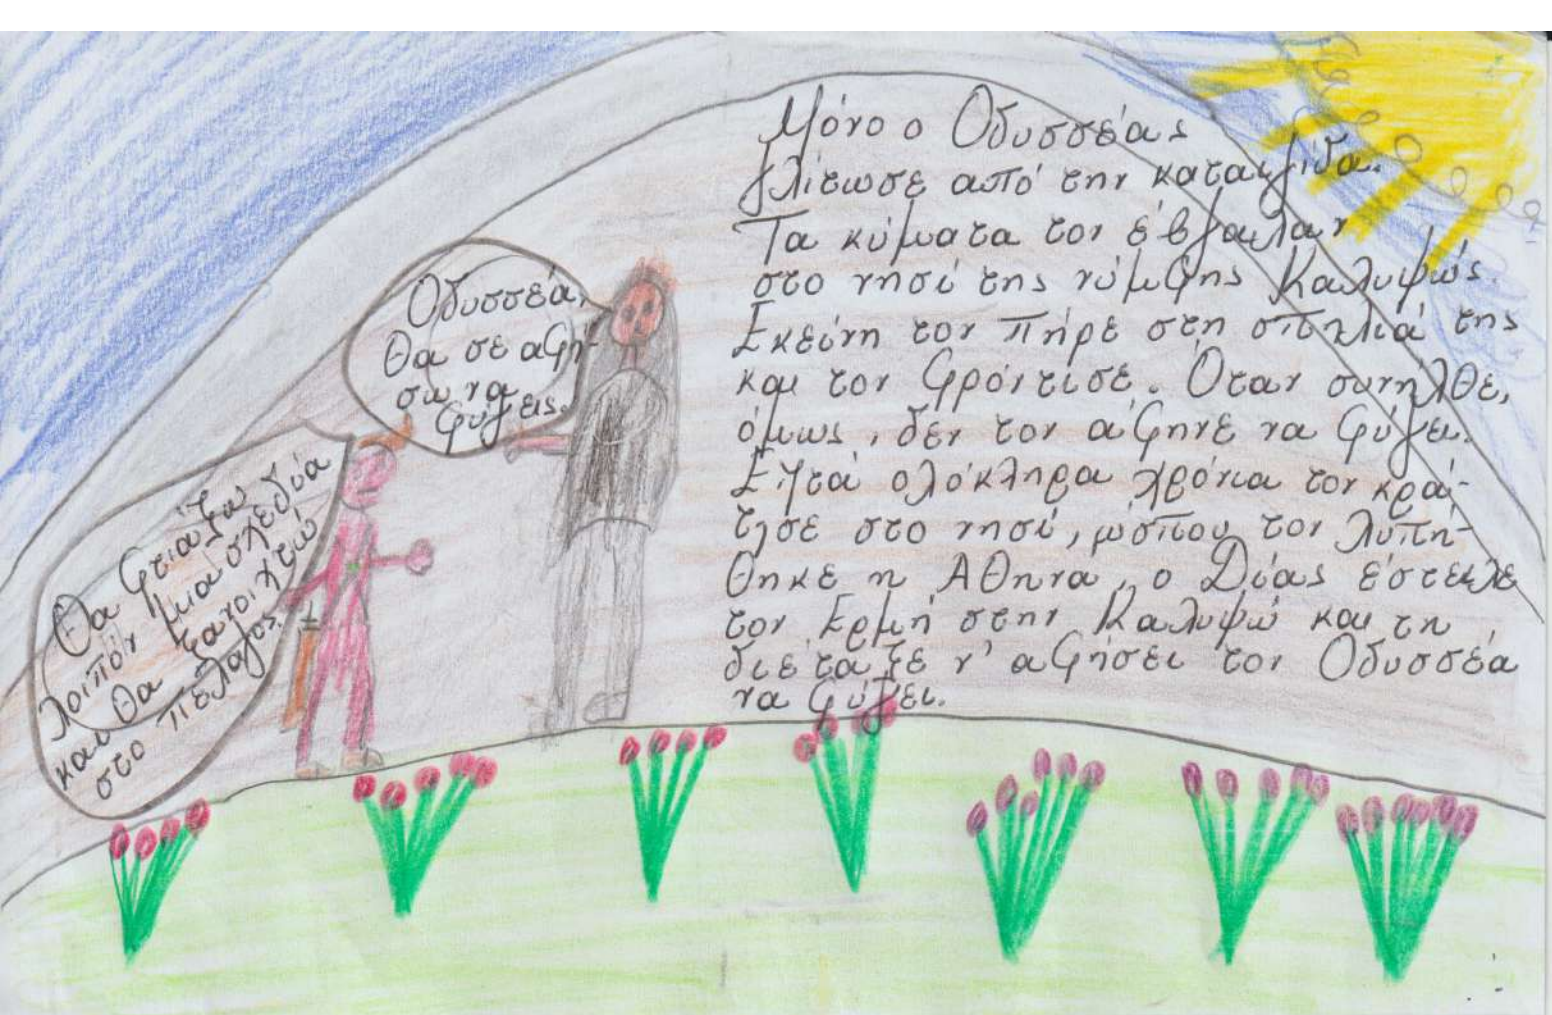 Μόνο ο Οδυσσέας
γλίτωσε από την καταιγίδα.
Τα κύματα τον έβγαλαν
στο νησί της νύμφης Καλυψώς.
Εκείνη τον πήρε στη σπηλιά της
και τον φρόντισε. Όταν συνήλθε,
όμως, δεν τον άφηνε να φύγει.
Επτά ολόκληρα χρόνια τον κρά-
τησε στο νησί, ώσπου τον λυπή-
θηκε η Αθηνα, ο Δίας έστειλε
τον Ερμή στην Καλυψώ και τη
διέταξε ν' αφήσει τον Οδυσσέα
να φύγει.
Οδυσσέα,
θα σε αφή-
σω να
φύγεις.
Θα φτιάξω
λοιπόν μια σχεδία
και θα ξανοιχτώ
στο πέλαγος.